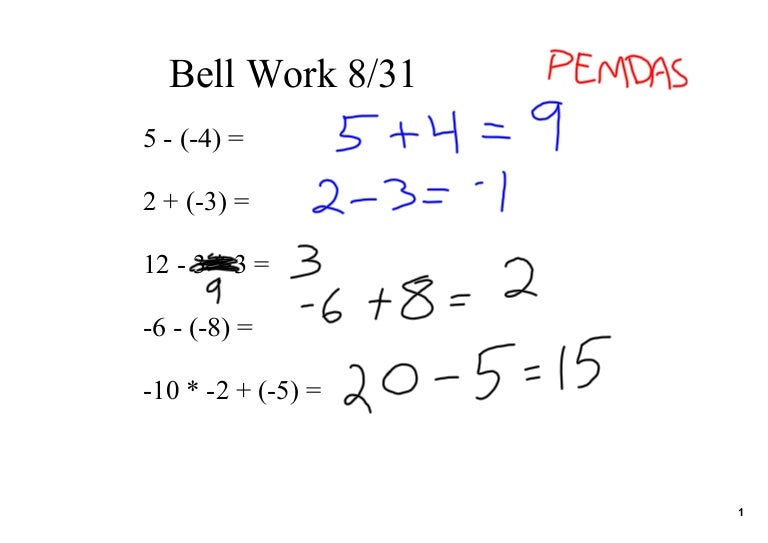 Bell Work 8/31 PEMDAS
5 - (-4) = 5 + 4 = 9
2 + (-3) = 2 - 3 = -1
12 - 3 = 3
9
-6 + 8 = 2
-6 - (-8) =
-10 * -2 + (-5) = 20 - 5 = 15
1